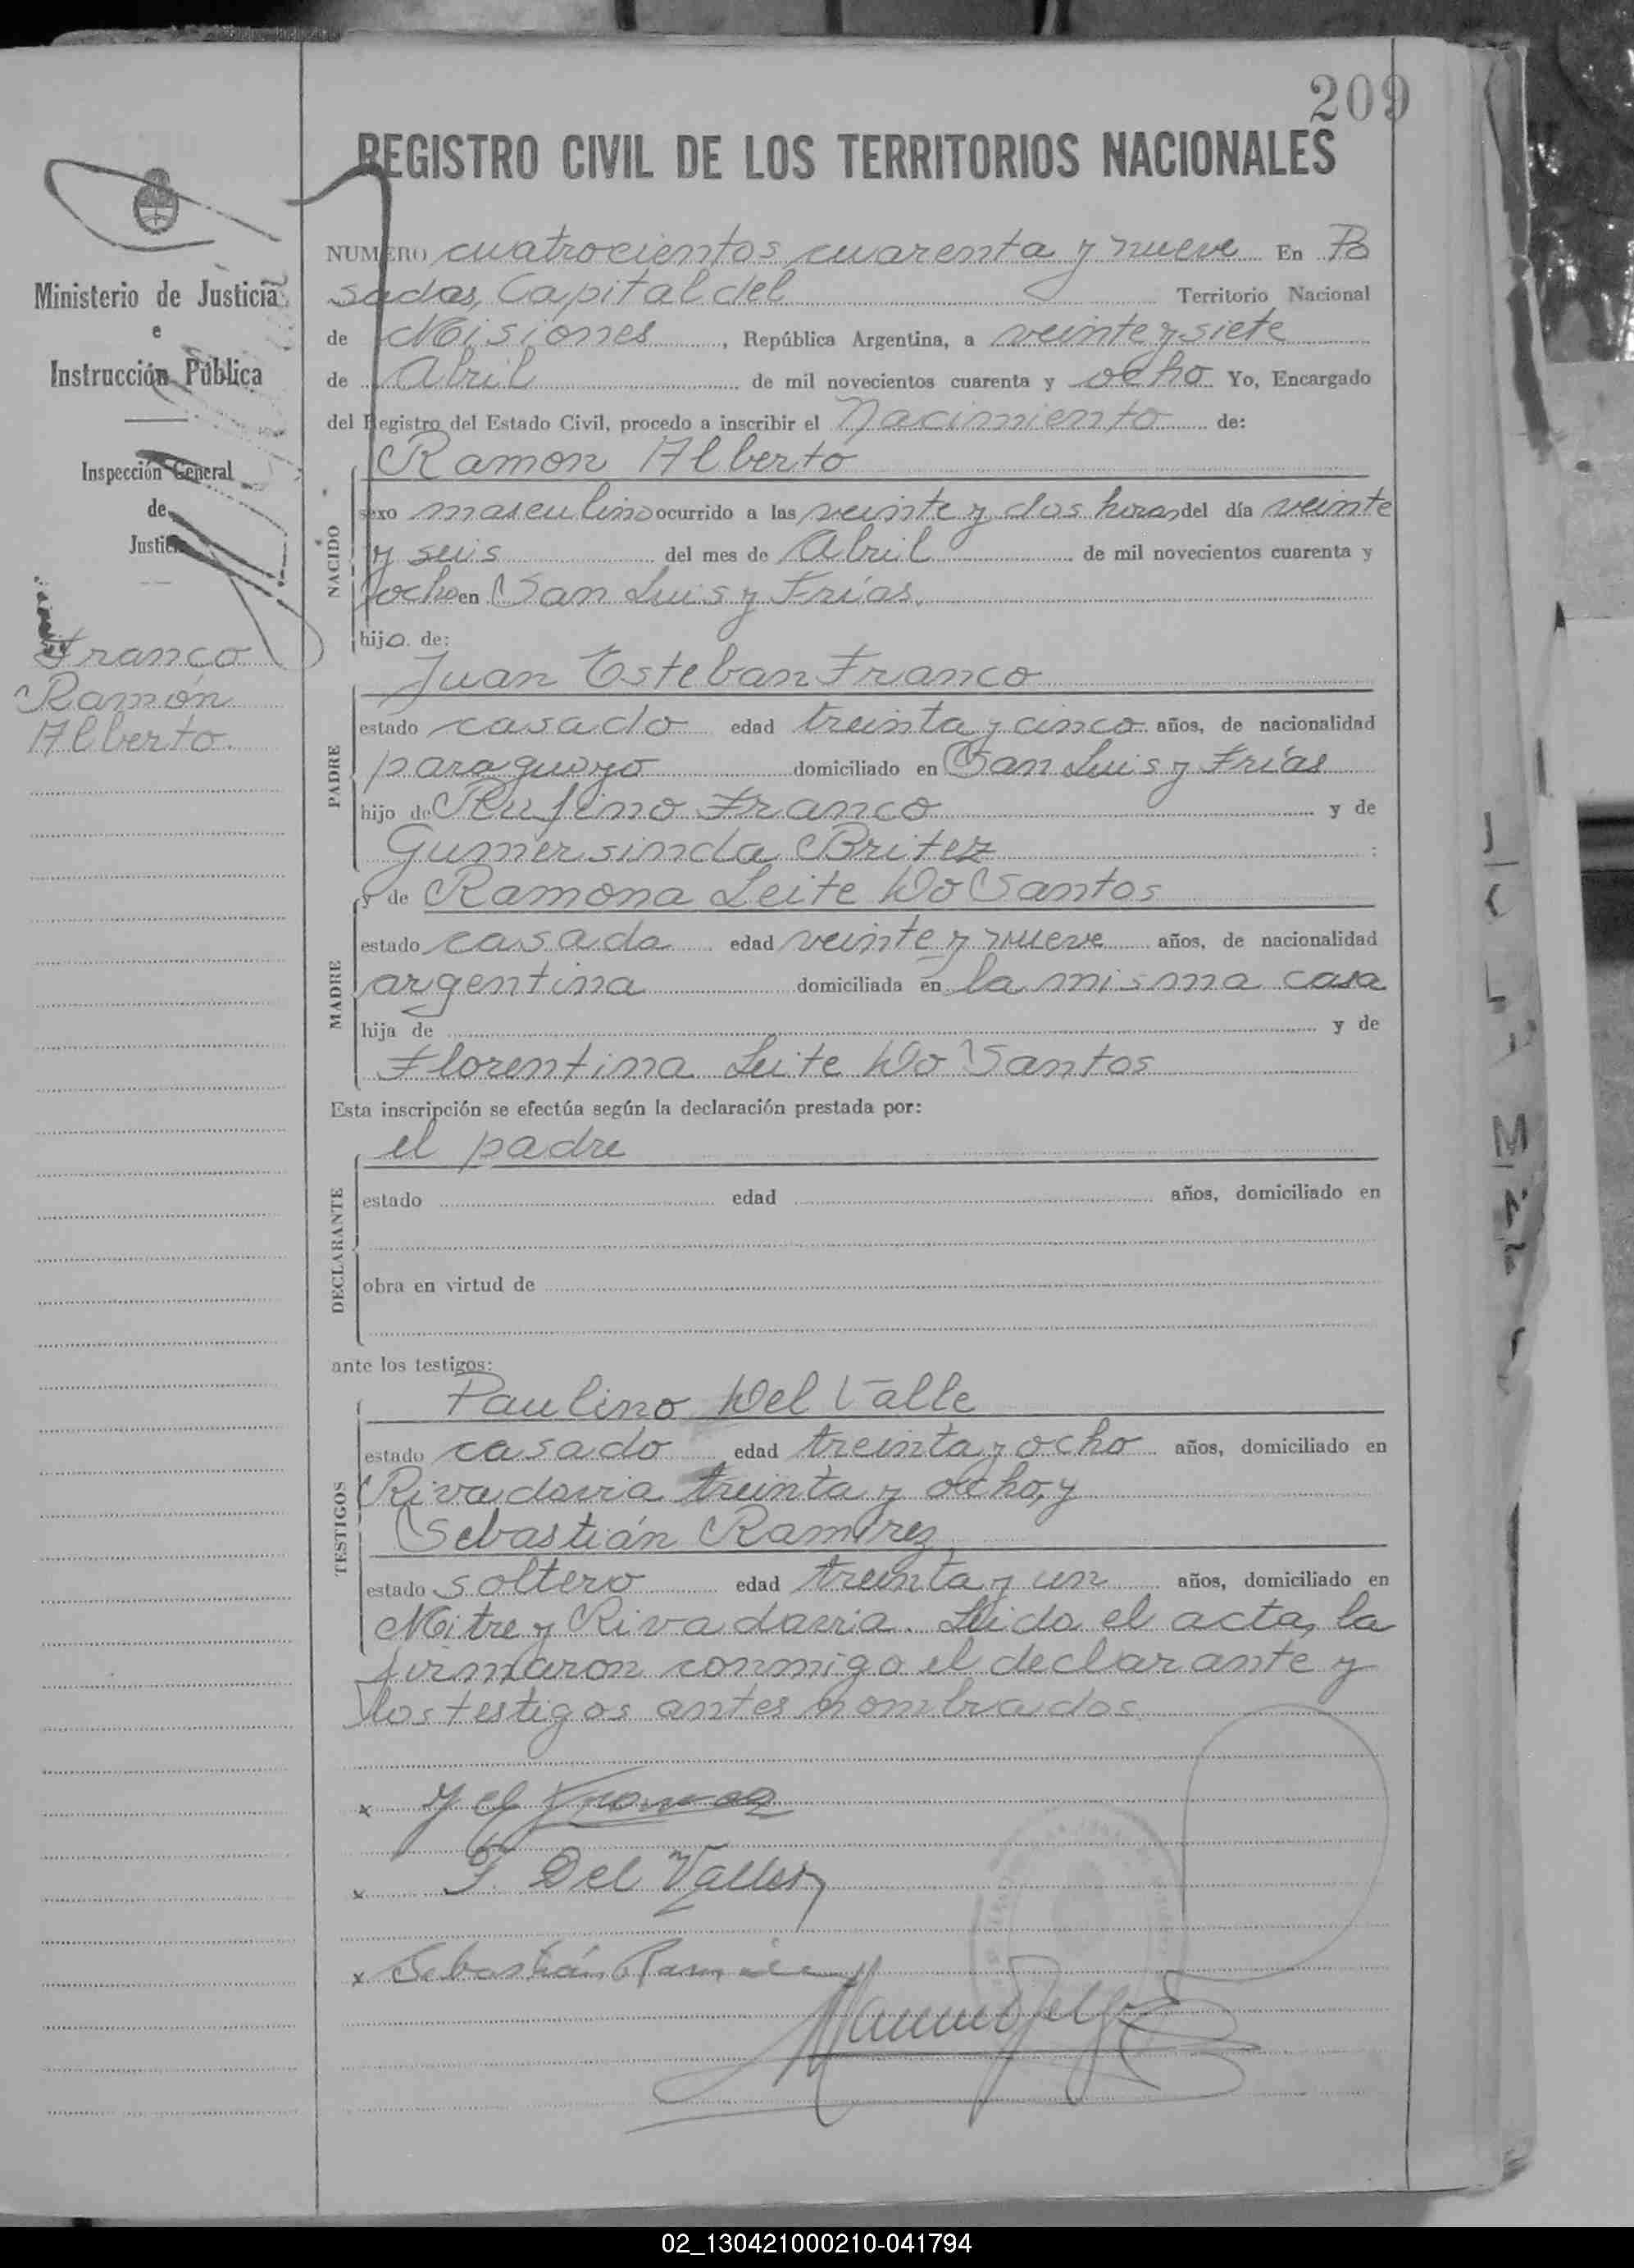 209
REGISTRO CIVIL DE LOS TERRITORIOS NACIONALES
Ministerio de Justicia
e
Instrucción Pública
Inspección General
de
Justicia
Franco
Ramón
Alberto.
NUMERO cuatrocientos cuarenta y nueve En Po
sadas, Capital del Territorio Nacional
de Misiones, República Argentina, a veinte y siete
de Abril de mil novecientos cuarenta y ocho Yo, Encargado
del Registro del Estado Civil, procedo a inscribir el Nacimiento de:
NACIDO
Ramon Alberto
sexo masculino ocurrido a las veinte y dos horas, del día veinte
y seis del mes de Abril de mil novecientos cuarenta y
ocho en San Luis y Frías.
hijo de:
PADRE
Juan Esteban Franco
estado casado edad treinta y cinco años, de nacionalidad
paraguayo domiciliado en San Luis y Frías
hijo de Rufino Franco y de
Gumersinda Britez
MADRE
y de Ramona Leite Do Santos
estado casada edad veinte y nueve años, de nacionalidad
argentina domiciliada en la misma casa
hija de y de
Florentina Leite Do Santos
Esta inscripción se efectúa según la declaración prestada por:
DECLARANTE
el padre
estado edad años, domiciliado en
obra en virtud de
ante los testigos:
TESTIGOS
Paulino Del Valle
estado casado edad treinta y ocho años, domiciliado en
Rivadavia treinta y ocho, y
Sebastián Ramirez,
estado soltero edad treinta y un años, domiciliado en
Mitre y Rivadavia. Leida el acta, la
firmaron conmigo el declarante y
los testigos antes nombrados.
x
x P. Del Valle
x Sebastián Ramirez
02_130421000210-041794